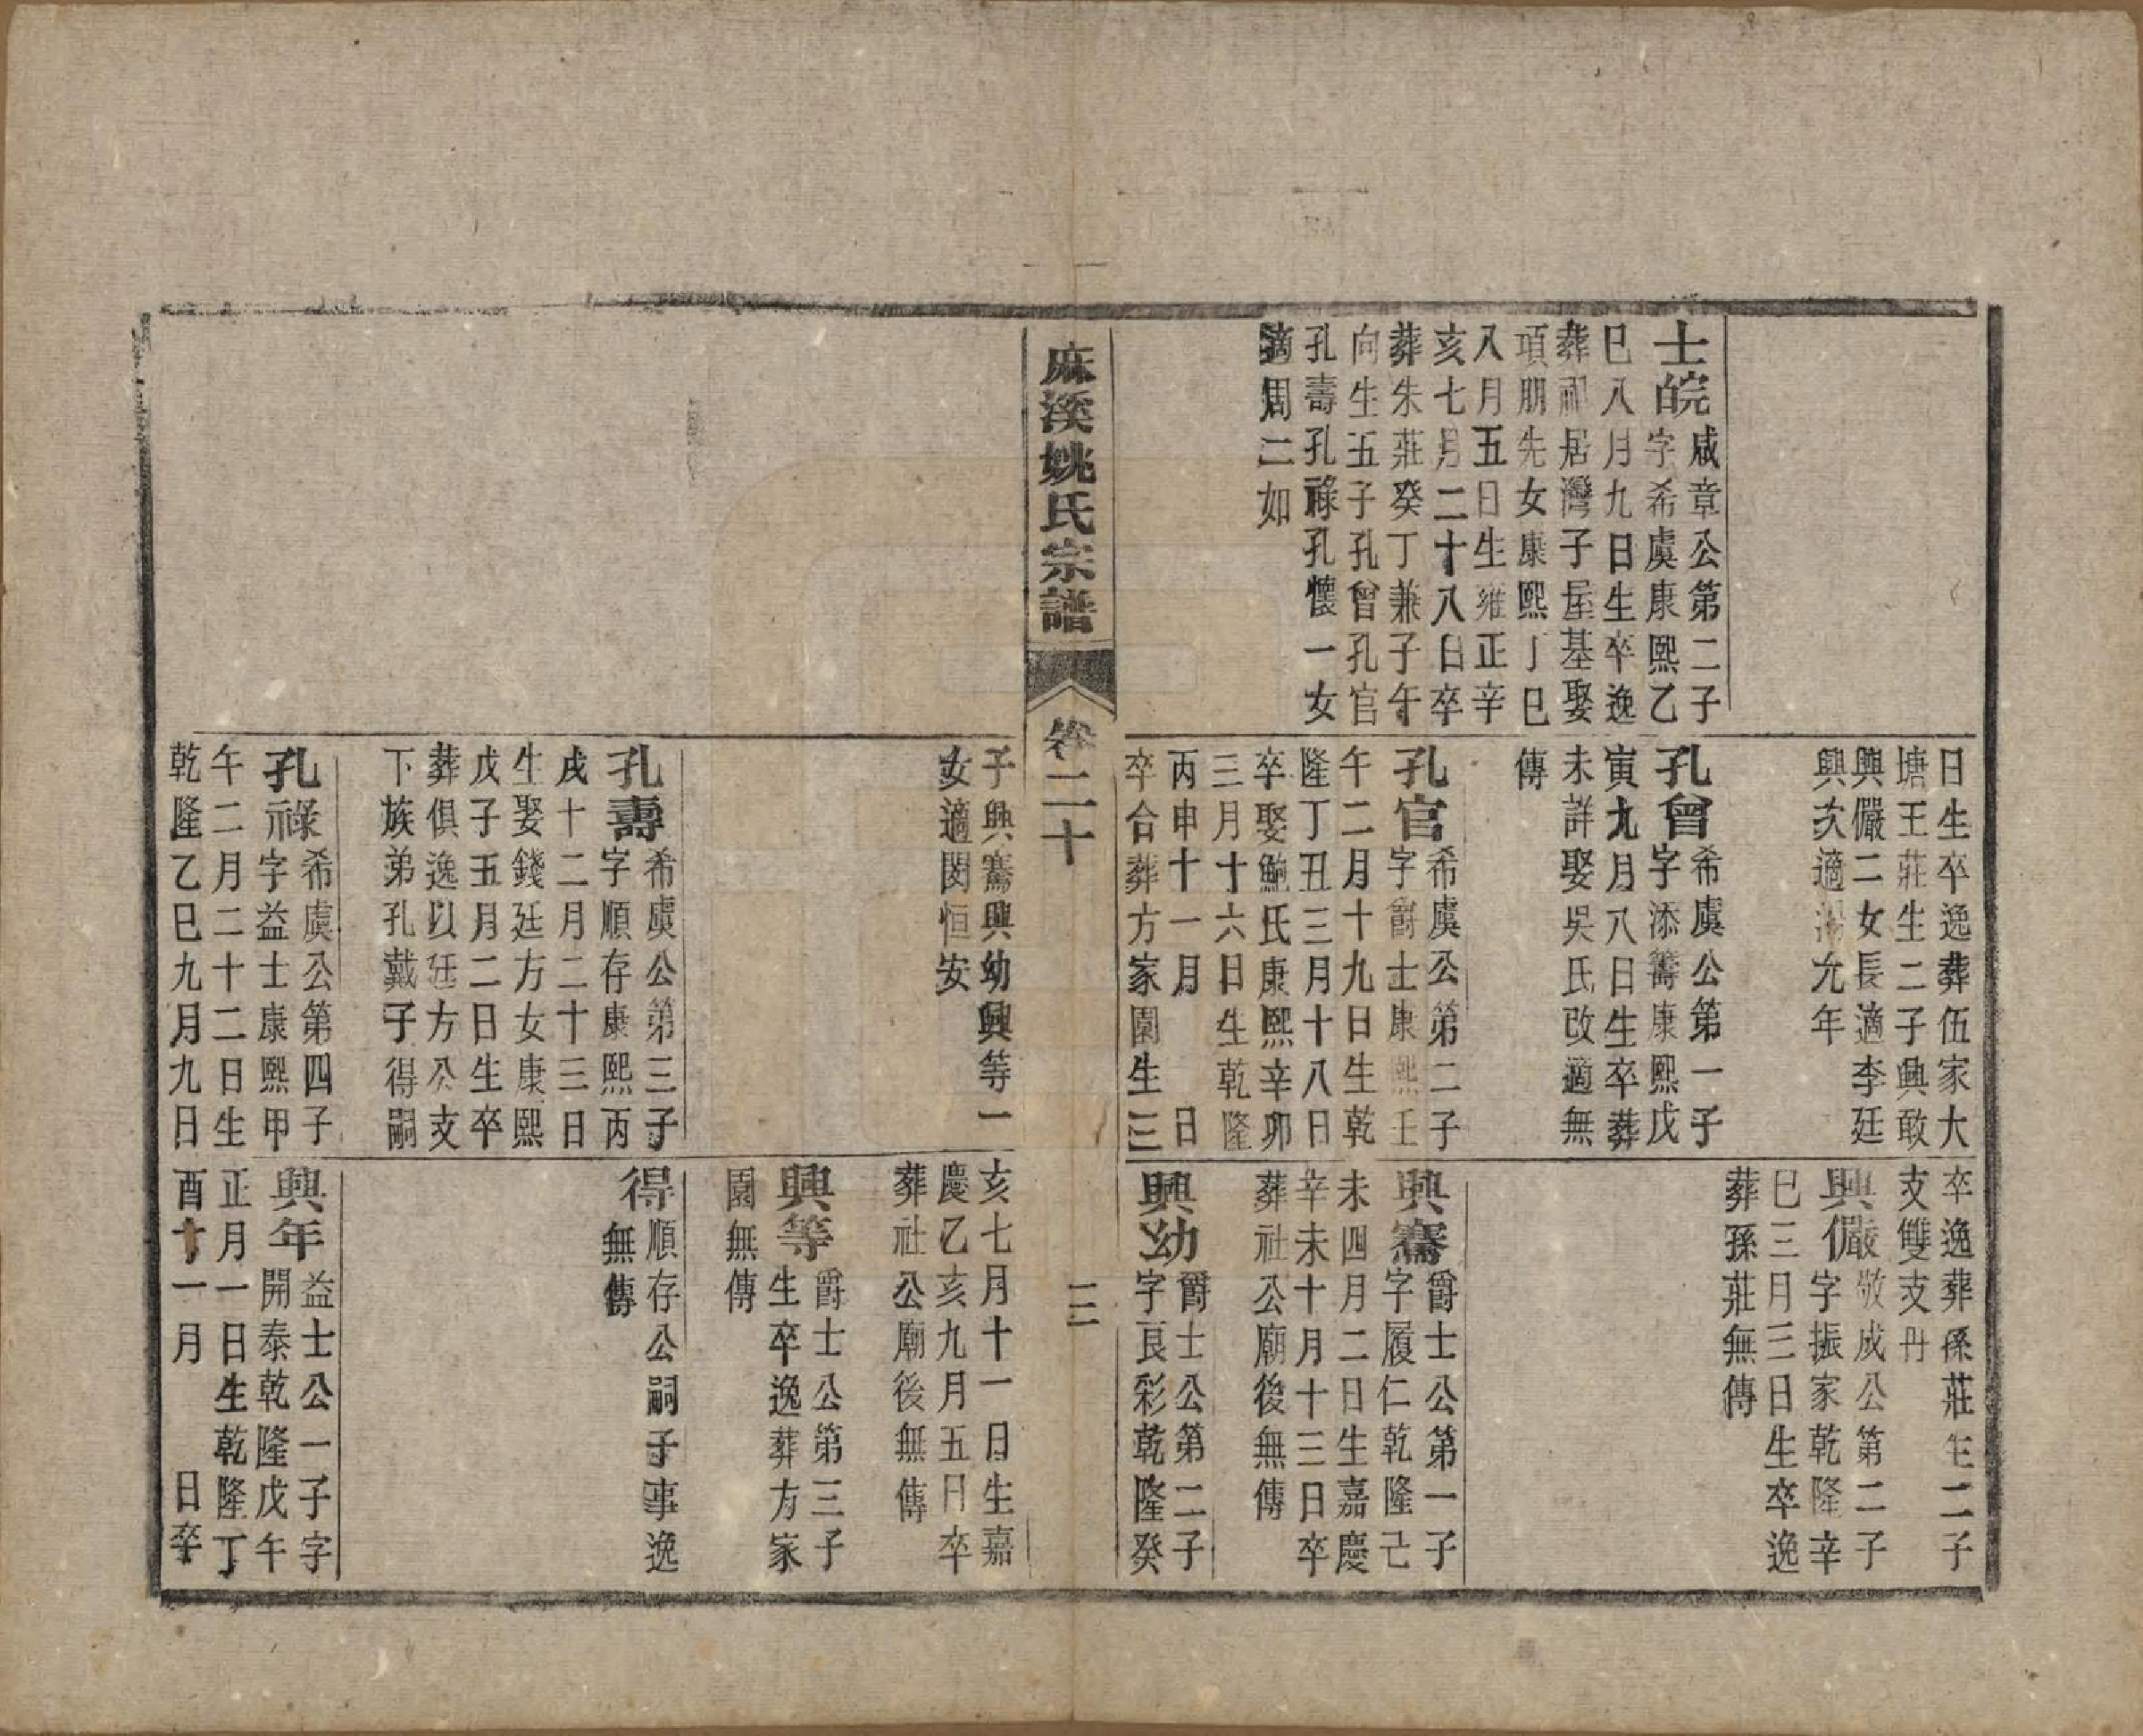 士皖咸章公第二子
字希虞康熙乙
巳八月九日生卒逸
葬祁居灣子屋基娶
項朋先女康熙丁巳
八月五日生雍正辛
亥七月二十八日卒
葬朱莊癸丁兼子午
向生五子孔曾孔官
孔壽孔祿孔懷一女
適周二如
日生卒逸葬伍家大
塘王莊生二子興敢
興儼二女長適李廷
興次適湯允年
孔曾希虞公第一子
字添籌康熙戊
寅九月八日生卒葬
未詳娶吳氏改適無
傳
孔官希虞公第二子
字爵士康熙壬
午二月十九日生乾
隆丁丑三月十八日
卒娶鮑氏康熙辛卯
三月十六日生乾隆
丙申十一月 日
卒合葬方家園生三
卒逸葬孫莊生二子
支雙支丹
興儼敬成公第二子
字振家乾隆辛
巳三月三日生卒逸
葬孫莊無傳
興騫爵士公第一子
字履仁乾隆己
未四月二日生嘉慶
辛未十月十三日卒
葬社公廟後無傳
興幼爵士公第二子
字良彩乾隆癸
麻溪姚氏宗譜
卷二十
三
子興騫興幼興等一
女適閔恒安
孔壽希虞公第三子
字順存康熙丙
戌十二月二十三日
生娶錢廷方女康熙
戊子五月二日生卒
葬俱逸以廷方公支
下族弟孔戴子得嗣
孔祿希虞公第四子
字益士康熙甲
午二月二十二日生
乾隆乙巳九月九日
亥七月十一日生嘉
慶乙亥九月五日卒
葬社公廟後無傳
興等爵士公第三子
生卒逸葬方家
園無傳
得順存公嗣子事逸
無傳
興年益士公一子字
開泰乾隆戊午
正月一日生乾隆丁
酉十一月 日卒